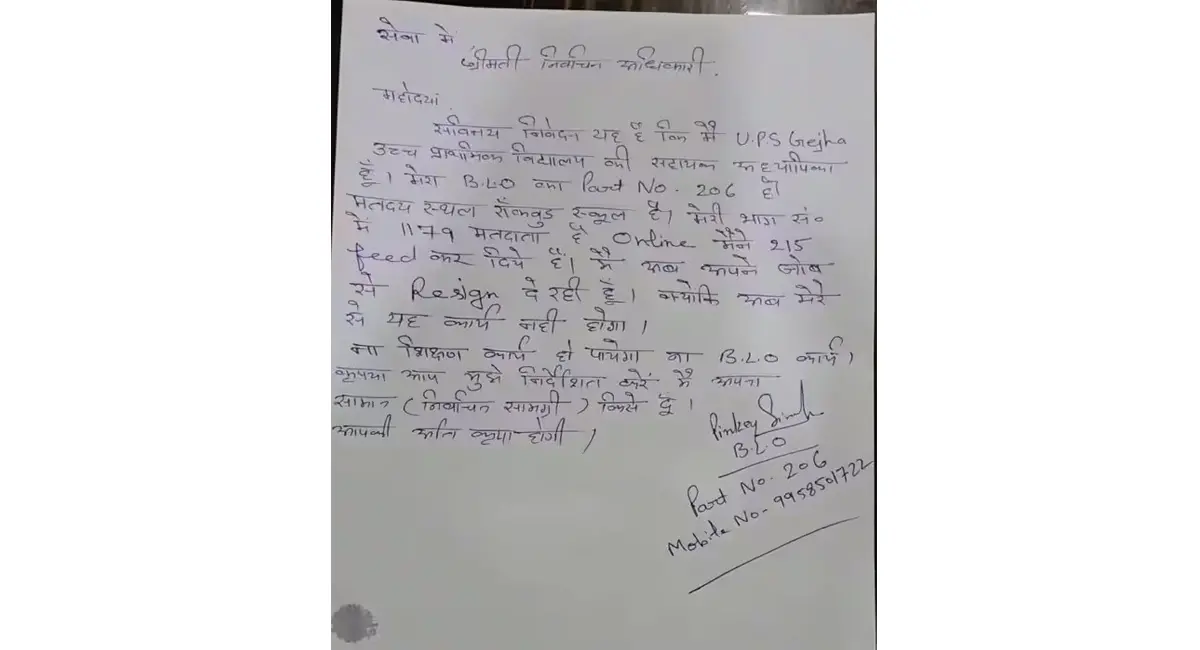 सेवा में
श्रीमती निर्वाचन अधिकारी.
महोदया.
सविनय निवेदन यह है कि मैं U.P.S Gejha
उच्च प्राथमिक विद्यालय की सहायक अध्यापिका
हूँ। मेरा B.L.O का Part No. 206 है।
मतदय स्थल रॉकवुड स्कूल है। मेरी भाग सं०
में 1179 मतदाता है Online मैंने 215
feed कर दिये हैं। मैं अब अपने जोब
से Resign दे रही हूँ। क्योकि अब मेरे
से यह कार्य नही होगा।
ना शिक्षण कार्य हो पायेगा ना B.L.O कार्य।
कृपया आप मुझे निर्देशित करें मैं अपना
सामान (निर्वाचन सामग्री) किसे दूँ।
आपकी अति कृपा होगी।
Pinkey Singh
B.L.O
Part No. 206
Mobile No- 9958501722